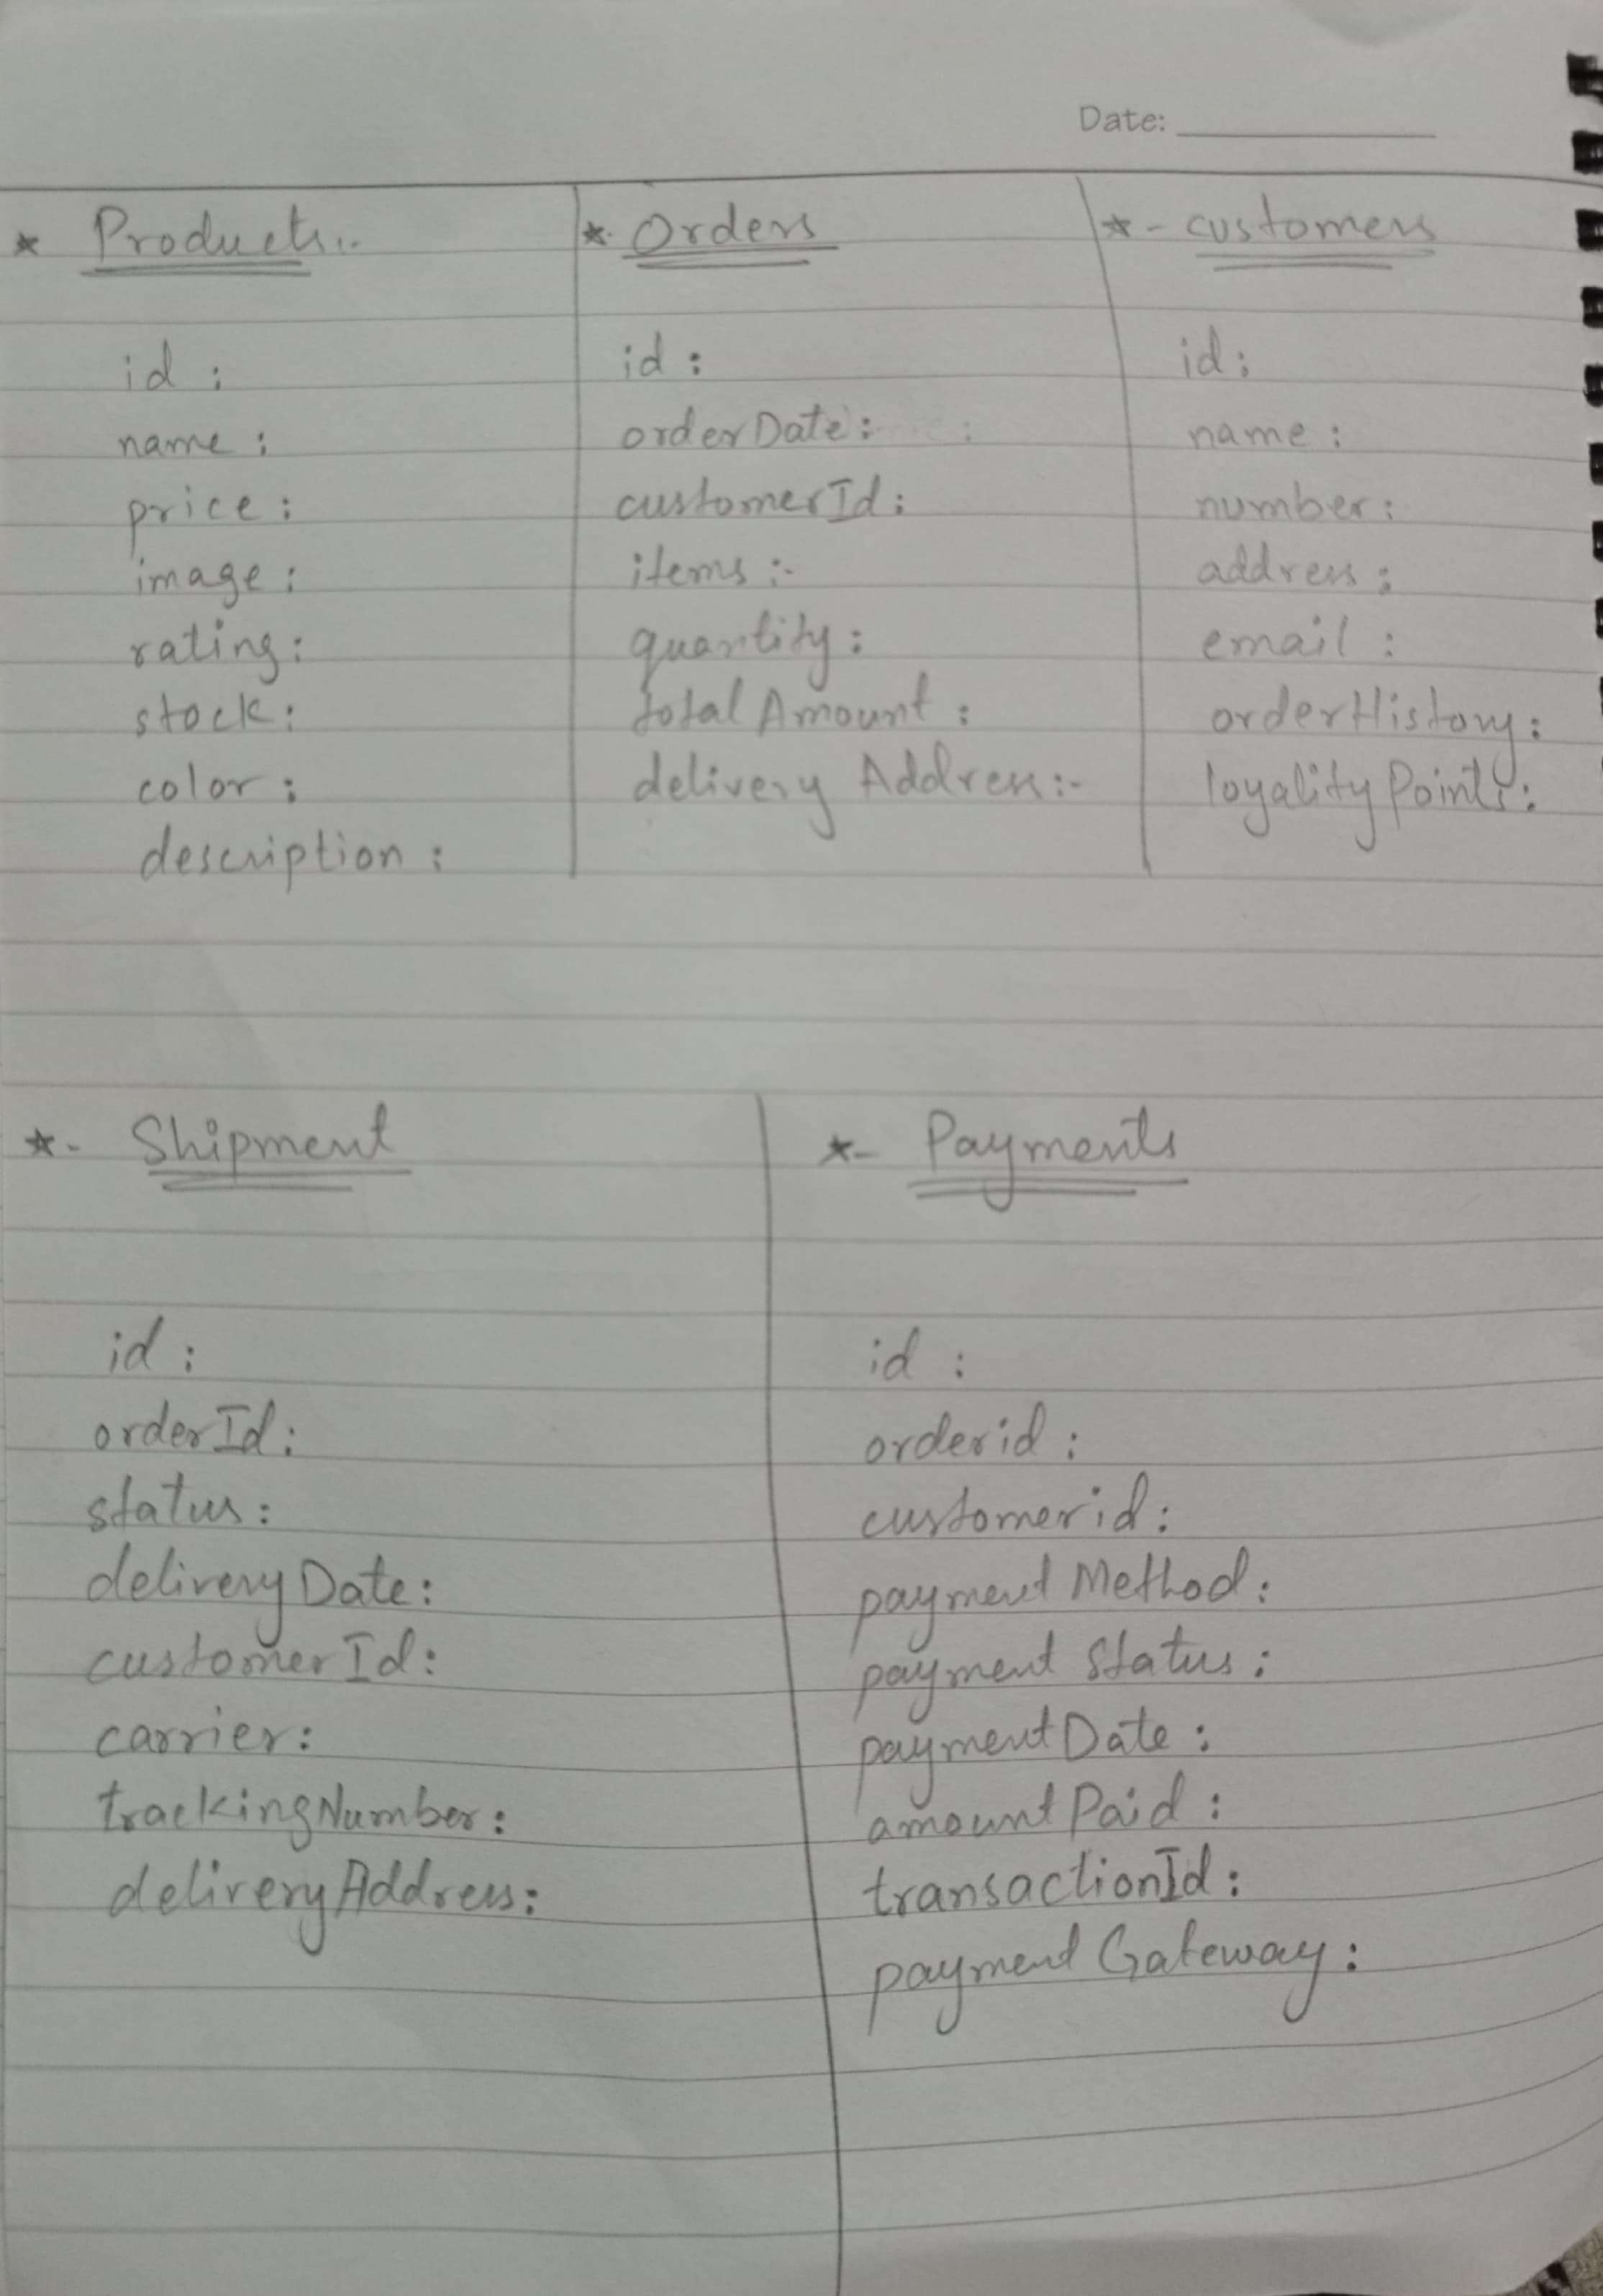 Date:
* Products:-
id :
name :
price :
image :
rating :
stock :
color :
description :
* Orders
id :
orderDate :
customerId :
items :-
quantity :
total Amount :
delivery Address :-
* - customers
id :
name :
number :
address :
email :
orderHistory :
loyality Points :
* - Shipment
id :
orderId :
status :
deliveryDate :
customerId :
carrier :
trackingNumber :
deliveryAddress :
* - Payments
id :
orderid :
customerid :
payment Method :
payment Status :
paymentDate :
amountPaid :
transactionId :
payment Gateway :